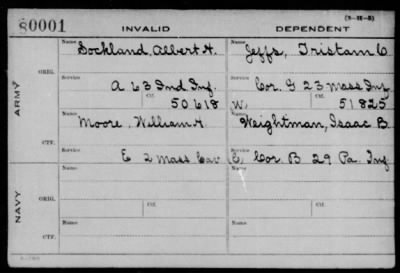 80001
(3-2-5)
INVALID
DEPENDENT
Name
Sockland, Albert H.
Name
Jeffs, Tristam C.
ORIG.
Service
A 63 Ind Inf.
Service
Cor. G 23 Mass Inf
ARMY
Ctf.
50618
W)
Ctf.
51825
Name
Moore, William H.
Name
Weightman, Isaac B.
CTF.
Service
E 2 Mass Cav
Service
(E) Cor. B 29 Pa. Inf.
Name
Name
ORIG.
Service
Ctf.
Service
Ctf.
NAVY
Name
Name
CTF.
Service
Service